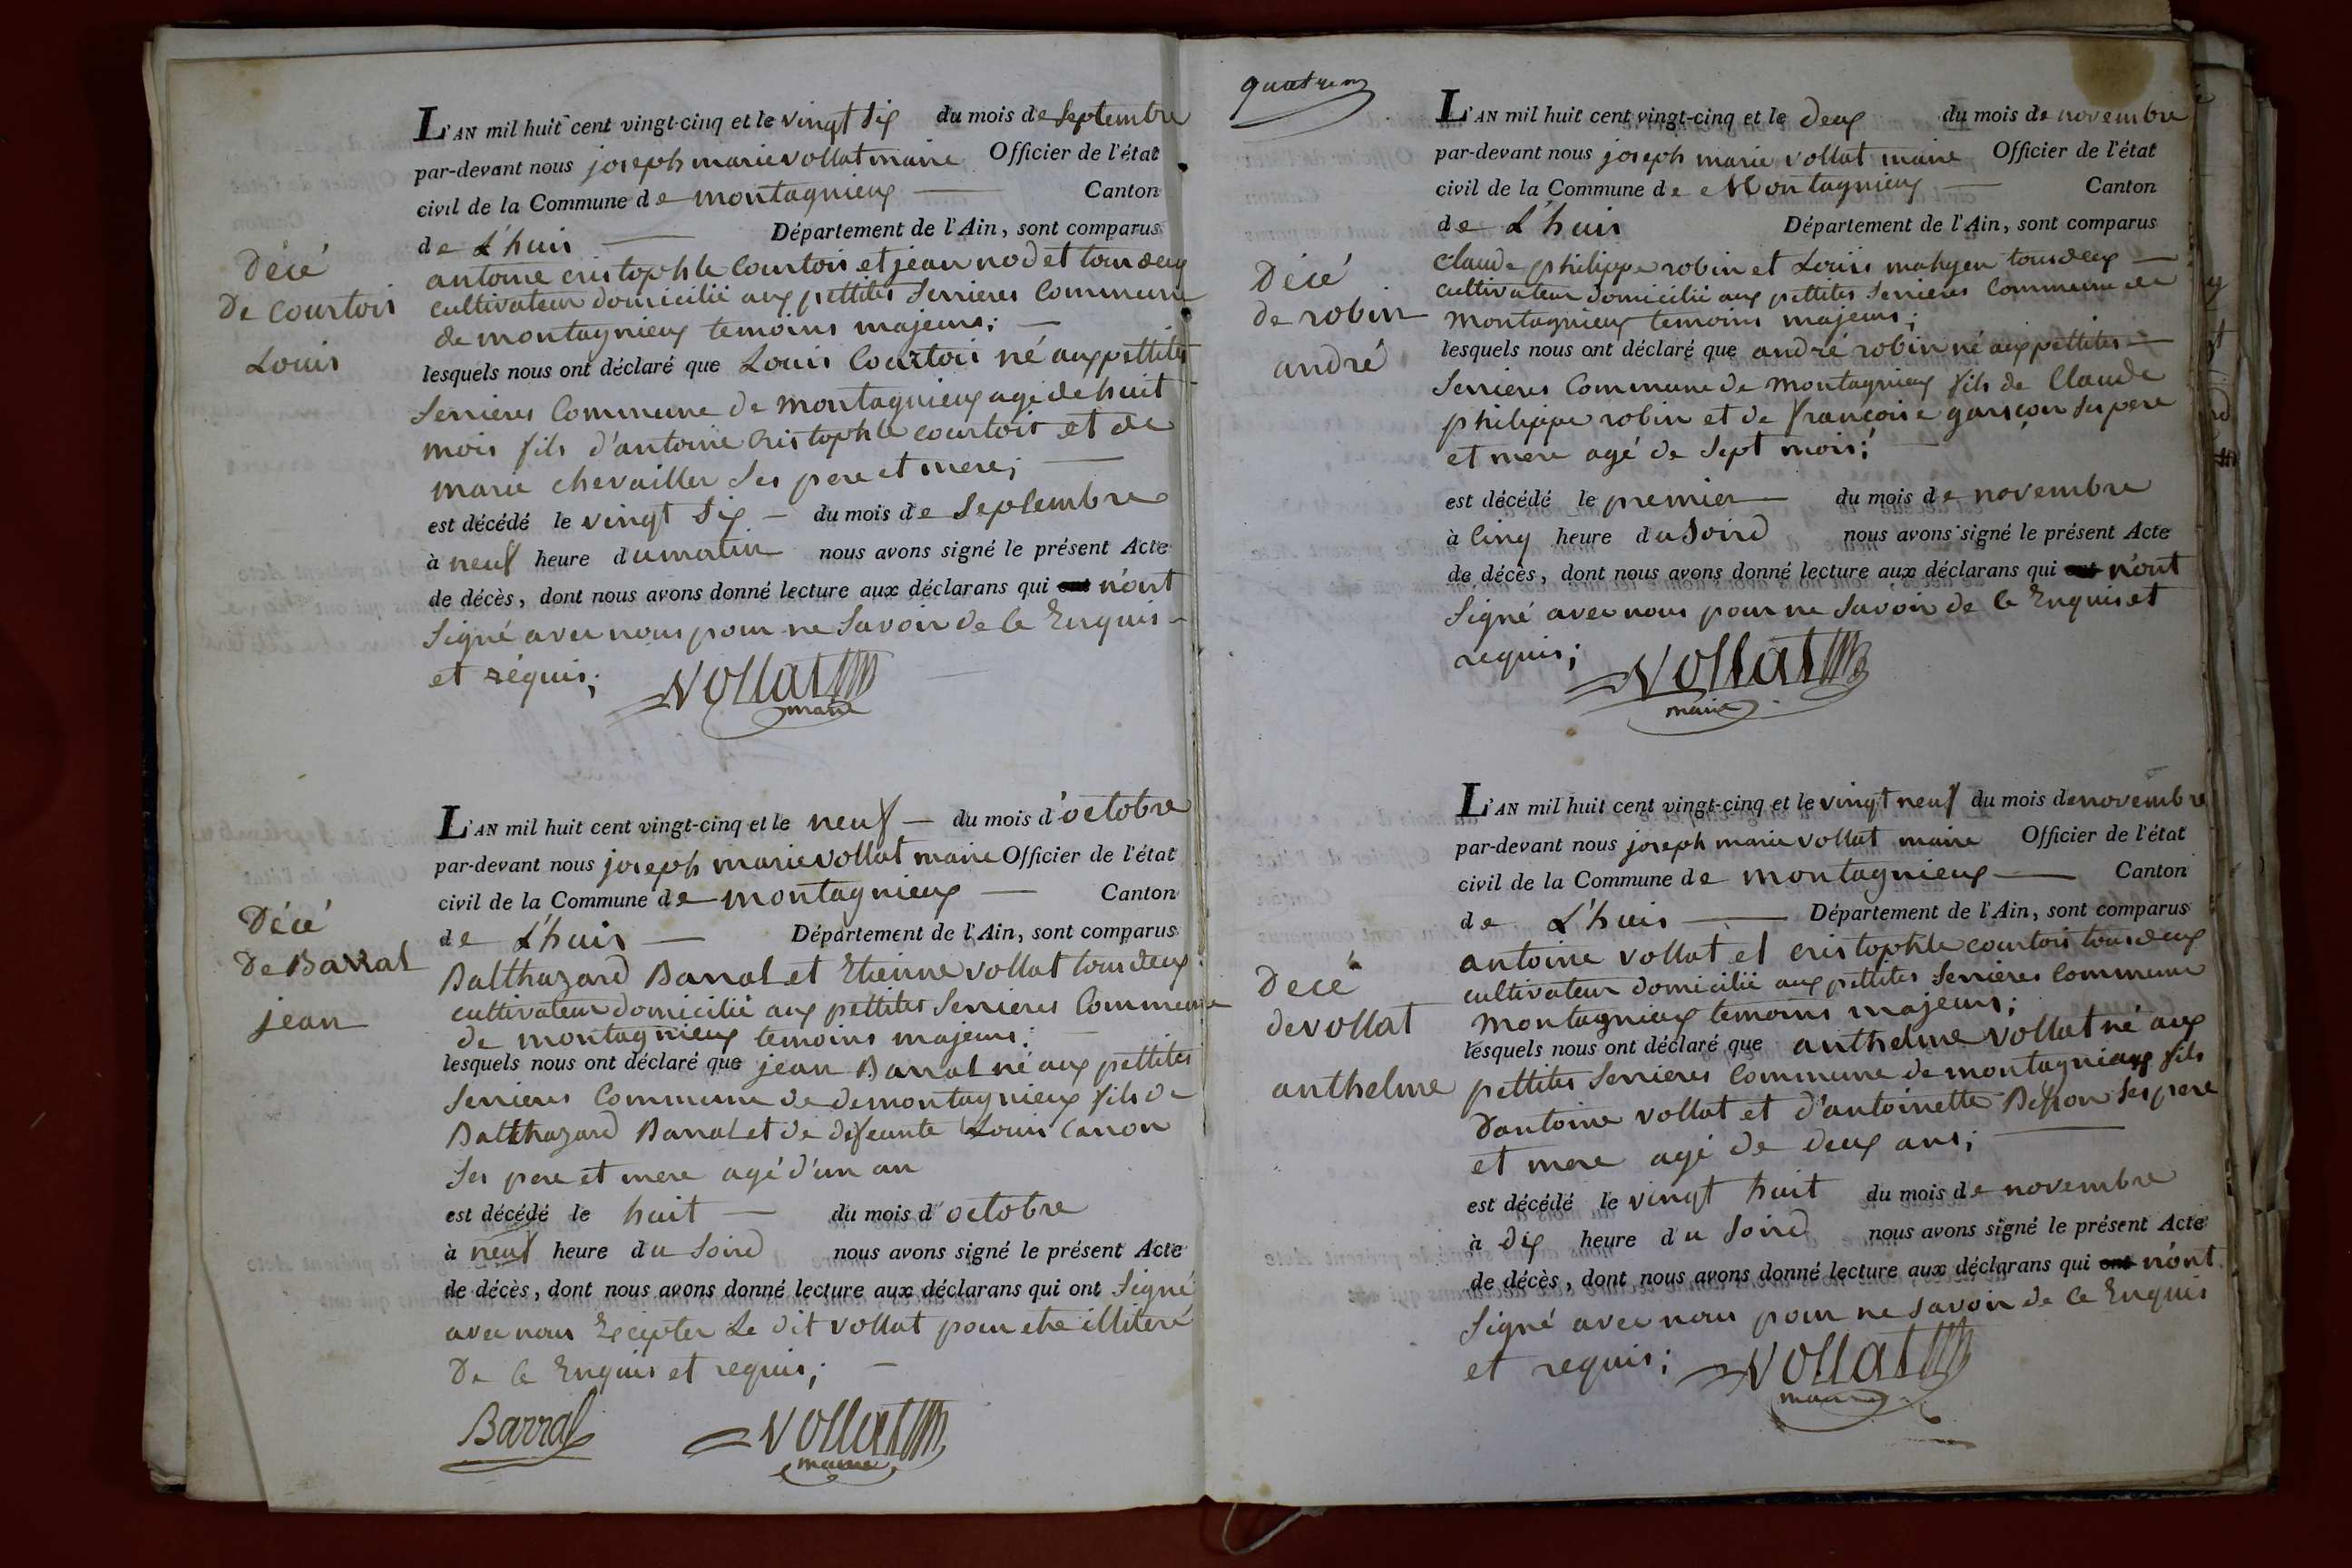 L'AN mil huit cent vingt-cinq et le vingt six du mois de septembre
par-devant nous joseph marie vollat maire Officier de l'état
civil de la Commune de montagnieux Canton
de L'huis Département de l'Ain, sont comparus
antoine cristophle Courtois et jean nodet tous deux
cultivateur domicilié aux pettites Serrieres Commune
de montagnieux temoins majeurs;
lesquels nous ont déclaré que Louis Courtois né aux pettites
Serrieres Commune de montagnieux agé de huit
mois fils d'antoine Cristophle courtois et de
marie chevailler Ses pere et mere;
est décédé le vingt six du mois de Septembre
à neuf heure du matin nous avons signé le présent Acte
de décès, dont nous avons donné lecture aux déclarans qui ont n'ont
Signé avec nous pour ne Savoir de ce Enquis
et réquis;
Vollat
maire
Décé
De Courtois
Louis
L'AN mil huit cent vingt-cinq et le neuf du mois d'octobre
par-devant nous joseph marie vollat maire Officier de l'état
civil de la Commune de montagnieux Canton
de L'huis Département de l'Ain, sont comparus
Balthazard Barral et Etienne vollat tous deux
cultivateur domicilié aux pettites Serrieres Commune
de montagnieux temoins majeurs;
lesquels nous ont déclaré que jean Barral né aux pettites
Serrieres Commune de demontagnieux fils de
Balthazard Barral et de defeunte Louis Canon
Ses pere et mere agé d'un an
est décédé le huit du mois d'octobre
à neuf heure du Soird nous avons signé le présent Acte
de décès, dont nous avons donné lecture aux déclarans qui ont Signé
avec nous Excepter Le dit vollat pour etre illiteré
De ce Enquis et requis;
Barral
Vollat
maire
Décé
De Barral
jean
quatre
L'AN mil huit cent vingt-cinq et le deux du mois de novembre
par-devant nous joseph marie vollat maire Officier de l'état
civil de la Commune de Montagnieux Canton
de L'huis Département de l'Ain, sont comparus
Claude philippe robin et Louis mahyen tous deux
cultivateur domicilié aux pettites Serrieres Commune de
montagnieux temoins majeurs;
lesquels nous ont déclaré que andré robin né aux pettites
Serrieres Commune de montagnieux fils de Claude
philippe robin et de françoise garsçon Ses pere
et mere agé de Sept mois;
est décédé le premier du mois de novembre
à Cinq heure du Soird nous avons signé le présent Acte
de décès, dont nous avons donné lecture aux déclarans qui ont n'ont
Signé avec nous pour ne Savoir de ce Enquis et
requis;
Vollat
maire
Décé
de robin
andré
L'AN mil huit cent vingt-cinq et le vingt neuf du mois de novembre
par-devant nous joseph marie vollat maire Officier de l'état
civil de la Commune de montagnieux Canton
de L'huis Département de l'Ain, sont comparus
antoine vollat et cristophle courtois tous deux
cultivateur domicilié aux pettites Serrieres Commune
montagnieux temoins majeurs;
lesquels nous ont déclaré que anthelme vollat né aux
pettites Serrieres Commune de montagnieux fils
D'antoine vollat et d'antoinette Ses pere
et mere agé de deux ans;
est décédé le vingt huit du mois de novembre
à Dix heure du Soird nous avons signé le présent Acte
de décès, dont nous avons donné lecture aux déclarans qui ont n'ont
Signé avec nous pour ne savoir de ce Enquis
et requis;
Vollat
maire
Decé
de vollat
anthelme